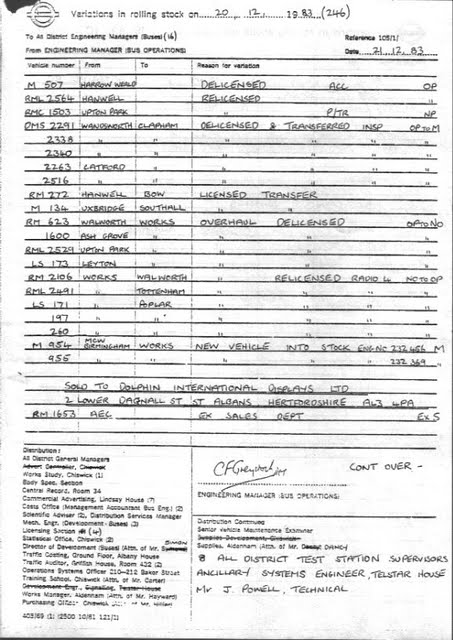 Variations in rolling stock on 20 . 12 . 1983 (246)
To All District Engineering Managers (Buses) (16) Reference 105/1/
From ENGINEERING MANAGER (BUS OPERATIONS) Date 21.12.83
Vehicle number From To Reason for variation
M 507 HARROW WEALD DELICENSED ACC OP
RML 2564 HANWELL RELICENSED "
RMC 1503 UPTON PARK " P/TR NP
DMS 2291 WANDSWORTH CLAPHAM DELICENSED & TRANSFERRED INSP OP TO M
2338 " " " " "
2340 " " " " "
2263 CATFORD " " " "
2516 " " " " "
RM 272 HANWELL BOW LICENSED TRANSFER
M 134 UXBRIDGE SOUTHALL " "
RM 623 WALWORTH WORKS OVERHAUL DELICENSED OP TO NO
1600 ASH GROVE " " " "
RML 2529 UPTON PARK " " " "
LS 173 LEYTON " " " "
RM 2106 WORKS WALWORTH " RELICENSED RADIO 4 NO TO OP
RML 2491 " TOTTENHAM " " "
LS 171 " POPLAR " " "
197 " " " " "
260 " " " " "
M 954 MCW BIRMINGHAM WORKS NEW VEHICLE INTO STOCK ENG NO 232 456 M
955 " " " " 232 369 "
SOLD TO DOLPHIN INTERNATIONAL DISPLAYS LTD
2 LOWER DAGNALL ST, ST ALBANS HERTFORDSHIRE AL3 4PA
RM 1653 AEC EX SALES DEPT EX S
Distribution:
All District General Managers
Advert Controller, Chiswick
Works Study, Chiswick (1)
Body Spec. Section
Central Record, Room 34
Commercial Advertising, Lindsay House (7)
Costs Office (Management Accountant Bus Eng.) (2)
Scientific Adviser (2), Distribution Services Manager
Mech. Engr. (Development - Buses) (3)
Licensing Section (4)
Statistical Office, Chiswick (2)
Director of Development (Buses) (Attn. of Mr. SIMON
Traffic Costing, Ground Floor, Albany House
Traffic Auditor, Griffith House, Room 422 (2)
Operations Systems Officer 210-212 Baker Street
Training School, Chiswick (Attn. of Mr. Carter)
Development Engr., Signalling, Telstar House
Works Manager, Aldenham (Attn. of Mr. Hayward)
Purchasing Officer Chiswick (Attn. of Mr.
405/69 (1) (2500 10/81 121/1)
CONT OVER -
ENGINEERING MANAGER (BUS OPERATIONS)
Distribution Continued
Senior Vehicle Maintenance Examiner
Supplies Development, Chiswick
Supplies, Aldenham (Attn. of Mr. DANCY)
8 ALL DISTRICT TEST STATION SUPERVISORS
ANCILLARY SYSTEMS ENGINEER, TELSTAR HOUSE
Mr J. POWELL, TECHNICAL